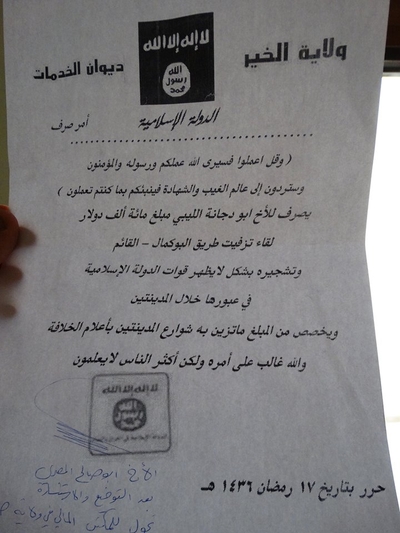 ولاية الخير
لا إله إلا الله
الله
رسول
محمد
ديوان الخدمات
الدولة الإسلامية
أمر صرف
( وقل اعملوا فسيرى الله عملكم ورسوله والمؤمنون
وستردون إلى عالم الغيب والشهادة فينبئكم بما كنتم تعملون )
يصرف للأخ ابو دجانة الليبي مبلغ مائة ألف دولار
لقاء تزفيت طريق البوكمال – القائم
وتشجيره بشكل لايظهر قوات الدولة الإسلامية
في عبورها خلال المدينتين
ويخصص من المبلغ ماتزين به شوارع المدينتين بأعلام الخلافة
والله غالب على أمره ولكن أكثر الناس لايعلمون
لا إله إلا الله
الأخ ابو صالح
بعد التوقيع
حرر بتاريخ ١٧ رمضان ١٤٣٦ هـ